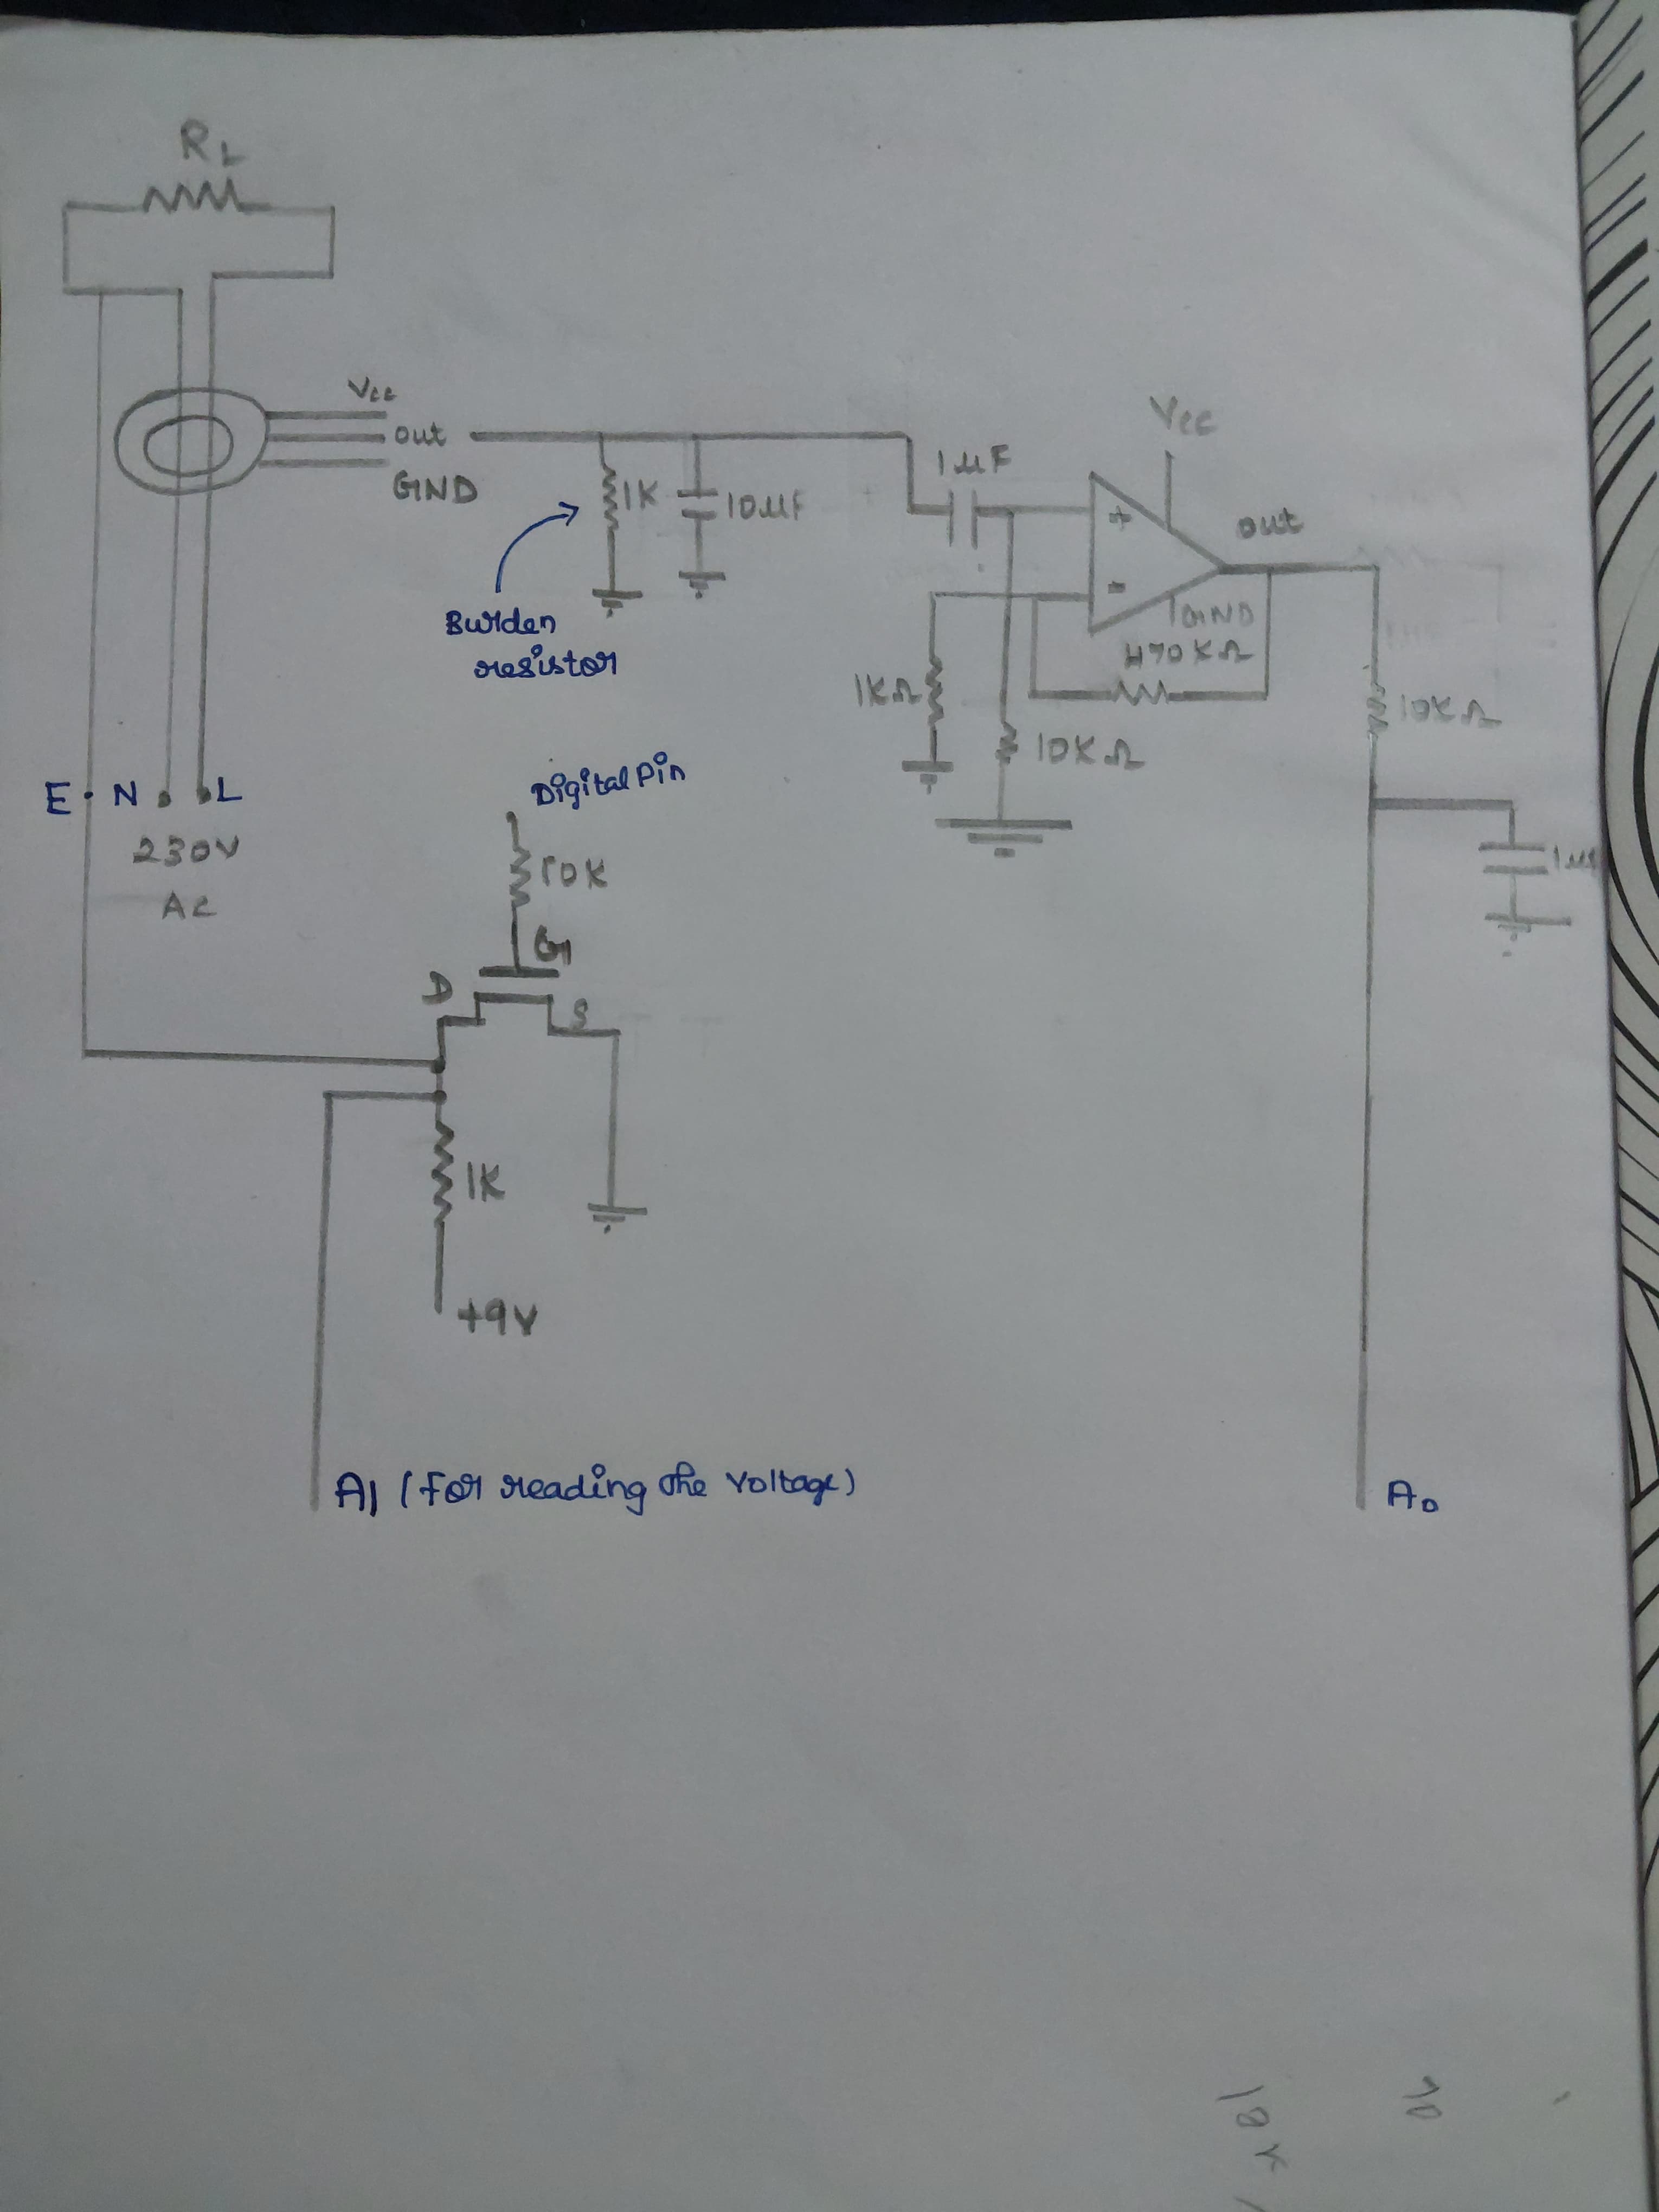 RL
Vcc
out
GND
1K
10μF
Burden
resistor
1μF
Vcc
+
-
out
GND
470KΩ
1KΩ
10KΩ
10KΩ
1μF
E N L
230V
AC
Digital Pin
10K
G
D
S
1K
+9V
A1 (For reading the voltage)
A0